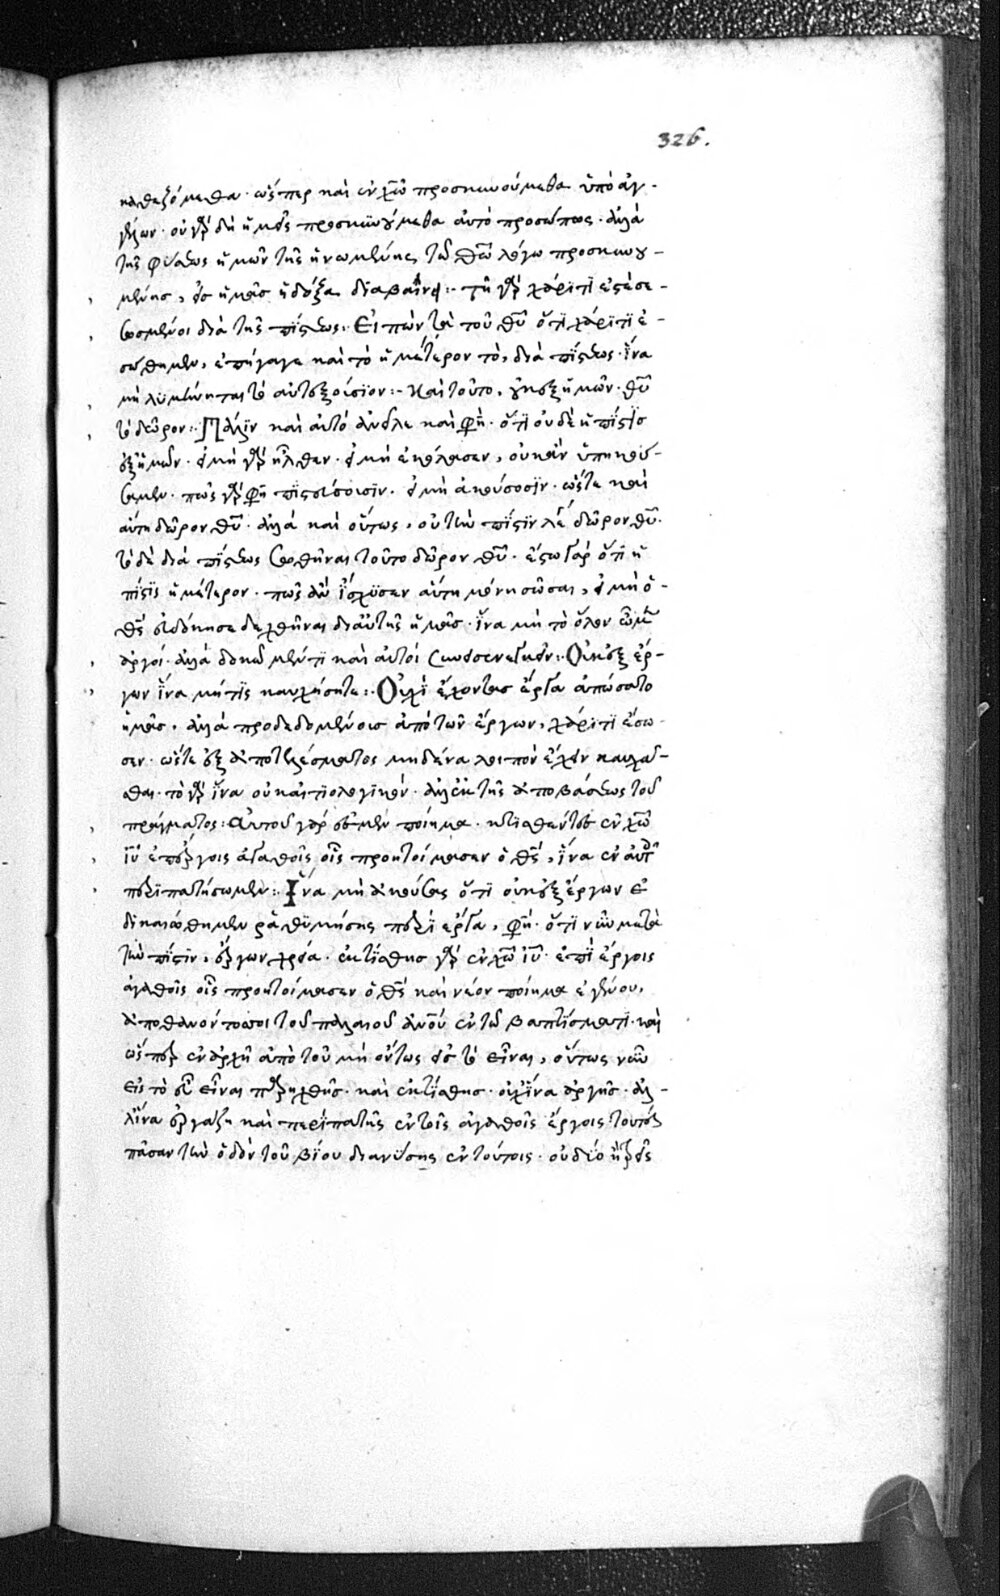 326.
καθεζόμεθα· ὥσπερ καὶ ἐν χῶ προσκυνούμεθα ὑπὸ ἀγ-
γέλων· οὐ γὰρ δὴ ἡμεῖς προσκυνούμεθα αὐτοπροσώπως· ἀλλὰ
τῆς φύσεως ἡμῶν τῆς ἡνωμένης τῶ θῶ λόγω προσκυνου-
μένης, εἰς ἡμᾶς ἡ δόξα διαβαίνει:- τῆ γὰρ χάριτί ἐστε σε-
σωσμένοι διὰ τῆς πίστεως:· Εἰπὼν τὰ τοῦ θῦ ὅτι χάριτι ἐ-
σώθημεν, ἐπήγαγε καὶ τὸ ἡμέτερον τὸ, διὰ πίστεως· ἵνα
μὴ λυμήνηται τὸ αὐτεξούσιον:- Καὶ τοῦτο, οὐκ ἐξ ἡμῶν· θῦ
τὸ δῶρον:· Πάλιν καὶ αὐτὸ ἀνεῖλε καὶ φη· ὅτι οὐδὲ ἡ πίστις
ἐξ ἡμῶν· εἰ μὴ γὰρ ἦλθεν· εἰ μὴ ἐκάλεσεν, οὐκ ἂν ὑπηκού-
σαμεν· πῶς γὰρ φη πιστεύσουσιν· εἰ μὴ ἀκούσωσιν· ὥστε καὶ
αὕτη δῶρον θῦ· ἀλλὰ καὶ οὕτως, οὐ τὴν πίστιν λέγει δῶρον θῦ·
τὸ δὲ διὰ πίστεως σωθῆναι τοῦτο δῶρον θῦ· ἔστω γὰρ ὅτι ἡ
πίστις ἡμέτερον· πῶς ἂν ἴσχυσεν αὕτη μόνη σῶσαι, εἰ μὴ ὁ
θς εὐδόκησε δεχθῆναι δι' αὐτῆς ἡμᾶς· ἵνα μὴ τὸ ὅλον ὦμεν
ἀργοί· ἀλλὰ δοκῶμέν τι καὶ αὐτοὶ συνεισενεγκεῖν:· Οὐκ ἐξ ἔρ-
γων ἵνα μή τις καυχήσηται:· Οὐχὶ ἔχοντας ἔργα ἀπώσατο
ἡμᾶς, ἀλλὰ προδεδομένους ἀπὸ τῶν ἔργων, χάριτι ἔσω-
σεν· ὥστε ἐξ ἀποτελέσματος μηδένα λοιπὸν ἔχειν καυχᾶ-
σθαι· τὸ γὰρ ἵνα οὐκ αἰτιολογικόν· ἀλλ' ἐκ τῆς ἀποβάσεως τοῦ
πράγματος:· Αὐτοῦ γάρ ἐσμεν ποίημα· κτισθέντες ἐν χῶ
ἰῦ ἐπ' ἔργοις ἀγαθοῖς οἷς προητοίμασεν ὁ θς, ἵνα ἐν αὐτοῖς
περιπατήσωμεν:· Ἵνα μὴ ἀκούσας ὅτι οὐκ ἐξ ἔργων ἐ-
δικαιώθημεν ῥαθυμήσης περὶ ἔργα, φη· ὅτι νῦν μετὰ
τὴν πίστιν, ἔργων χρεία· ἐκτίσθης γὰρ ἐν χῶ ἰῦ· ἐπὶ ἔργοις
ἀγαθοῖς οἷς προητοίμασεν ὁ θς καὶ νέον ποίημα ἐγένου,
ἀποθανόντος σοι τοῦ παλαιοῦ ἀνου ἐν τῶ βαπτίσματι· καὶ
ὥσπερ ἐν ἀρχῆ ἀπὸ τοῦ μὴ ὄντως εἰς τὸ εἶναι, οὕτως νῦν
εἰς τὸ εὖ εἶναι παρήχθης· καὶ ἐκτίσθης· οὐχ ἵνα ἀργῆς· ἀλ-
λ' ἵνα ἐργάζη καὶ περιπατῆς ἐν τοῖς ἀγαθοῖς ἔργοις τουτέστι
πᾶσαν τὴν ὁδὸν τοῦ βίου διανύσης ἐν τούτοις· οὐ δύο ἢ τρεῖς